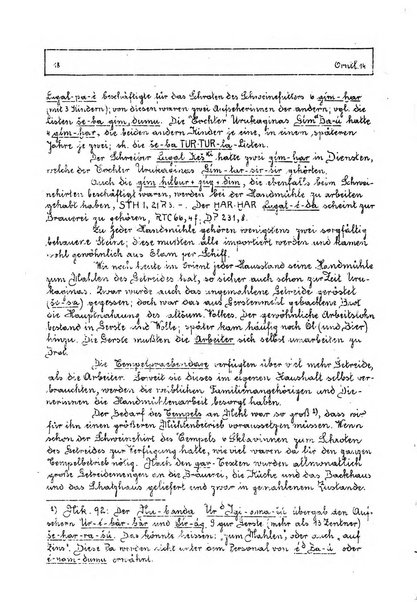 18 Orient. 14
Lugal-pa-è beschäftigte für das Schroten des Schweinefutters 6 gím-har
(mit 3 Kindern); von diesen waren zwei Aufseherinnen der andern; vgl. die
Listen še-ba gim, dumu. Die Tochter Urukaginas Gim ᵈBa-ú hatte
4 gím-har, die beiden andern Kinder je eine, in einem späteren
Jahre je zwei; cf. die še-ba TUR-TUR-la-Listen.
Der Schreiber Lugal Keš hatte zwei gím-har in Diensten,
welche der Tochter Urukaginas Gím-tar-sir-sir gehörten.
Auch die gim, die ebenfalls beim Schwei-
nehirten beschäftigt waren, werden bei der Handmühle zu arbeiten
gehabt haben, STH 1, 21 73. - Der HAR-HAR Lugal-é-da scheint zur
Brauerei zu gehören, RTC 66, 4f. DP 231, 8.
Zu jeder Handmühle gehören wenigstens zwei sorgfältig
behauene Steine; diese mußten alle importiert werden und kamen
wohl gewöhnlich aus Elam per Schiff.
Wie noch heute im Orient jeder Hausstand seine Handmühle
zum Mahlen des Getreides hat, so sicher auch schon zur Zeit Uru-
kaginas. Zwar wurde auch das ungemahlene Getreide geröstet
(še-sa) gegessen; doch war das aus Gerstenmehl gebackene Brot
die Hauptnahrung des altsum. Volkes. Der gewöhnliche Arbeitslohn
bestand in Gerste und Wolle; später kam häufig noch Öl (und Bier)
hinzu. Die Gerste mußten die Arbeiter sich selbst umarbeiten zu
Brot.
Die Tempelpraebendare verfügten über viel mehr Getreide,
als die Arbeiter. Soweit sie dieses im eigenen Haushalt selbst ver-
brauchten, werden die weiblichen Familienangehörigen und Die-
nerinnen die Handmühlenarbeit besorgt haben.
Der Bedarf des Tempels an Mehl war so groß ¹), dass wir
für ihn einen größeren Mühlenbetrieb voraussetzen müssen. Wenn
schon der Schweinehirt des Tempels 4 Sklavinnen zum Schroten
des Getreides zur Verfügung hatte, wie viel waren da für den ganzen
Tempelbetrieb nötig. Nach den gar-Texten wurden allmonatlich
große Getreidemengen an die Brauerei, die Küche und das Backhaus
und das Schatzhaus geliefert und zwar in gemahlenem Zustande.
¹) Nik. 92: Der Nu-banda Ur ᵈIgi-ama-šú übergab den Auf-
sehern Ur-é-bár-bár und 9 gur Gerste (mehr als 93 Zentner)
še-har-ra-šú. Das könnte heissen: „zum Mahlen" oder auch „auf
Zins". Diese werden nicht unter dem Personal von é ᵈBa-ú oder
é-nam-dumu erwähnt.